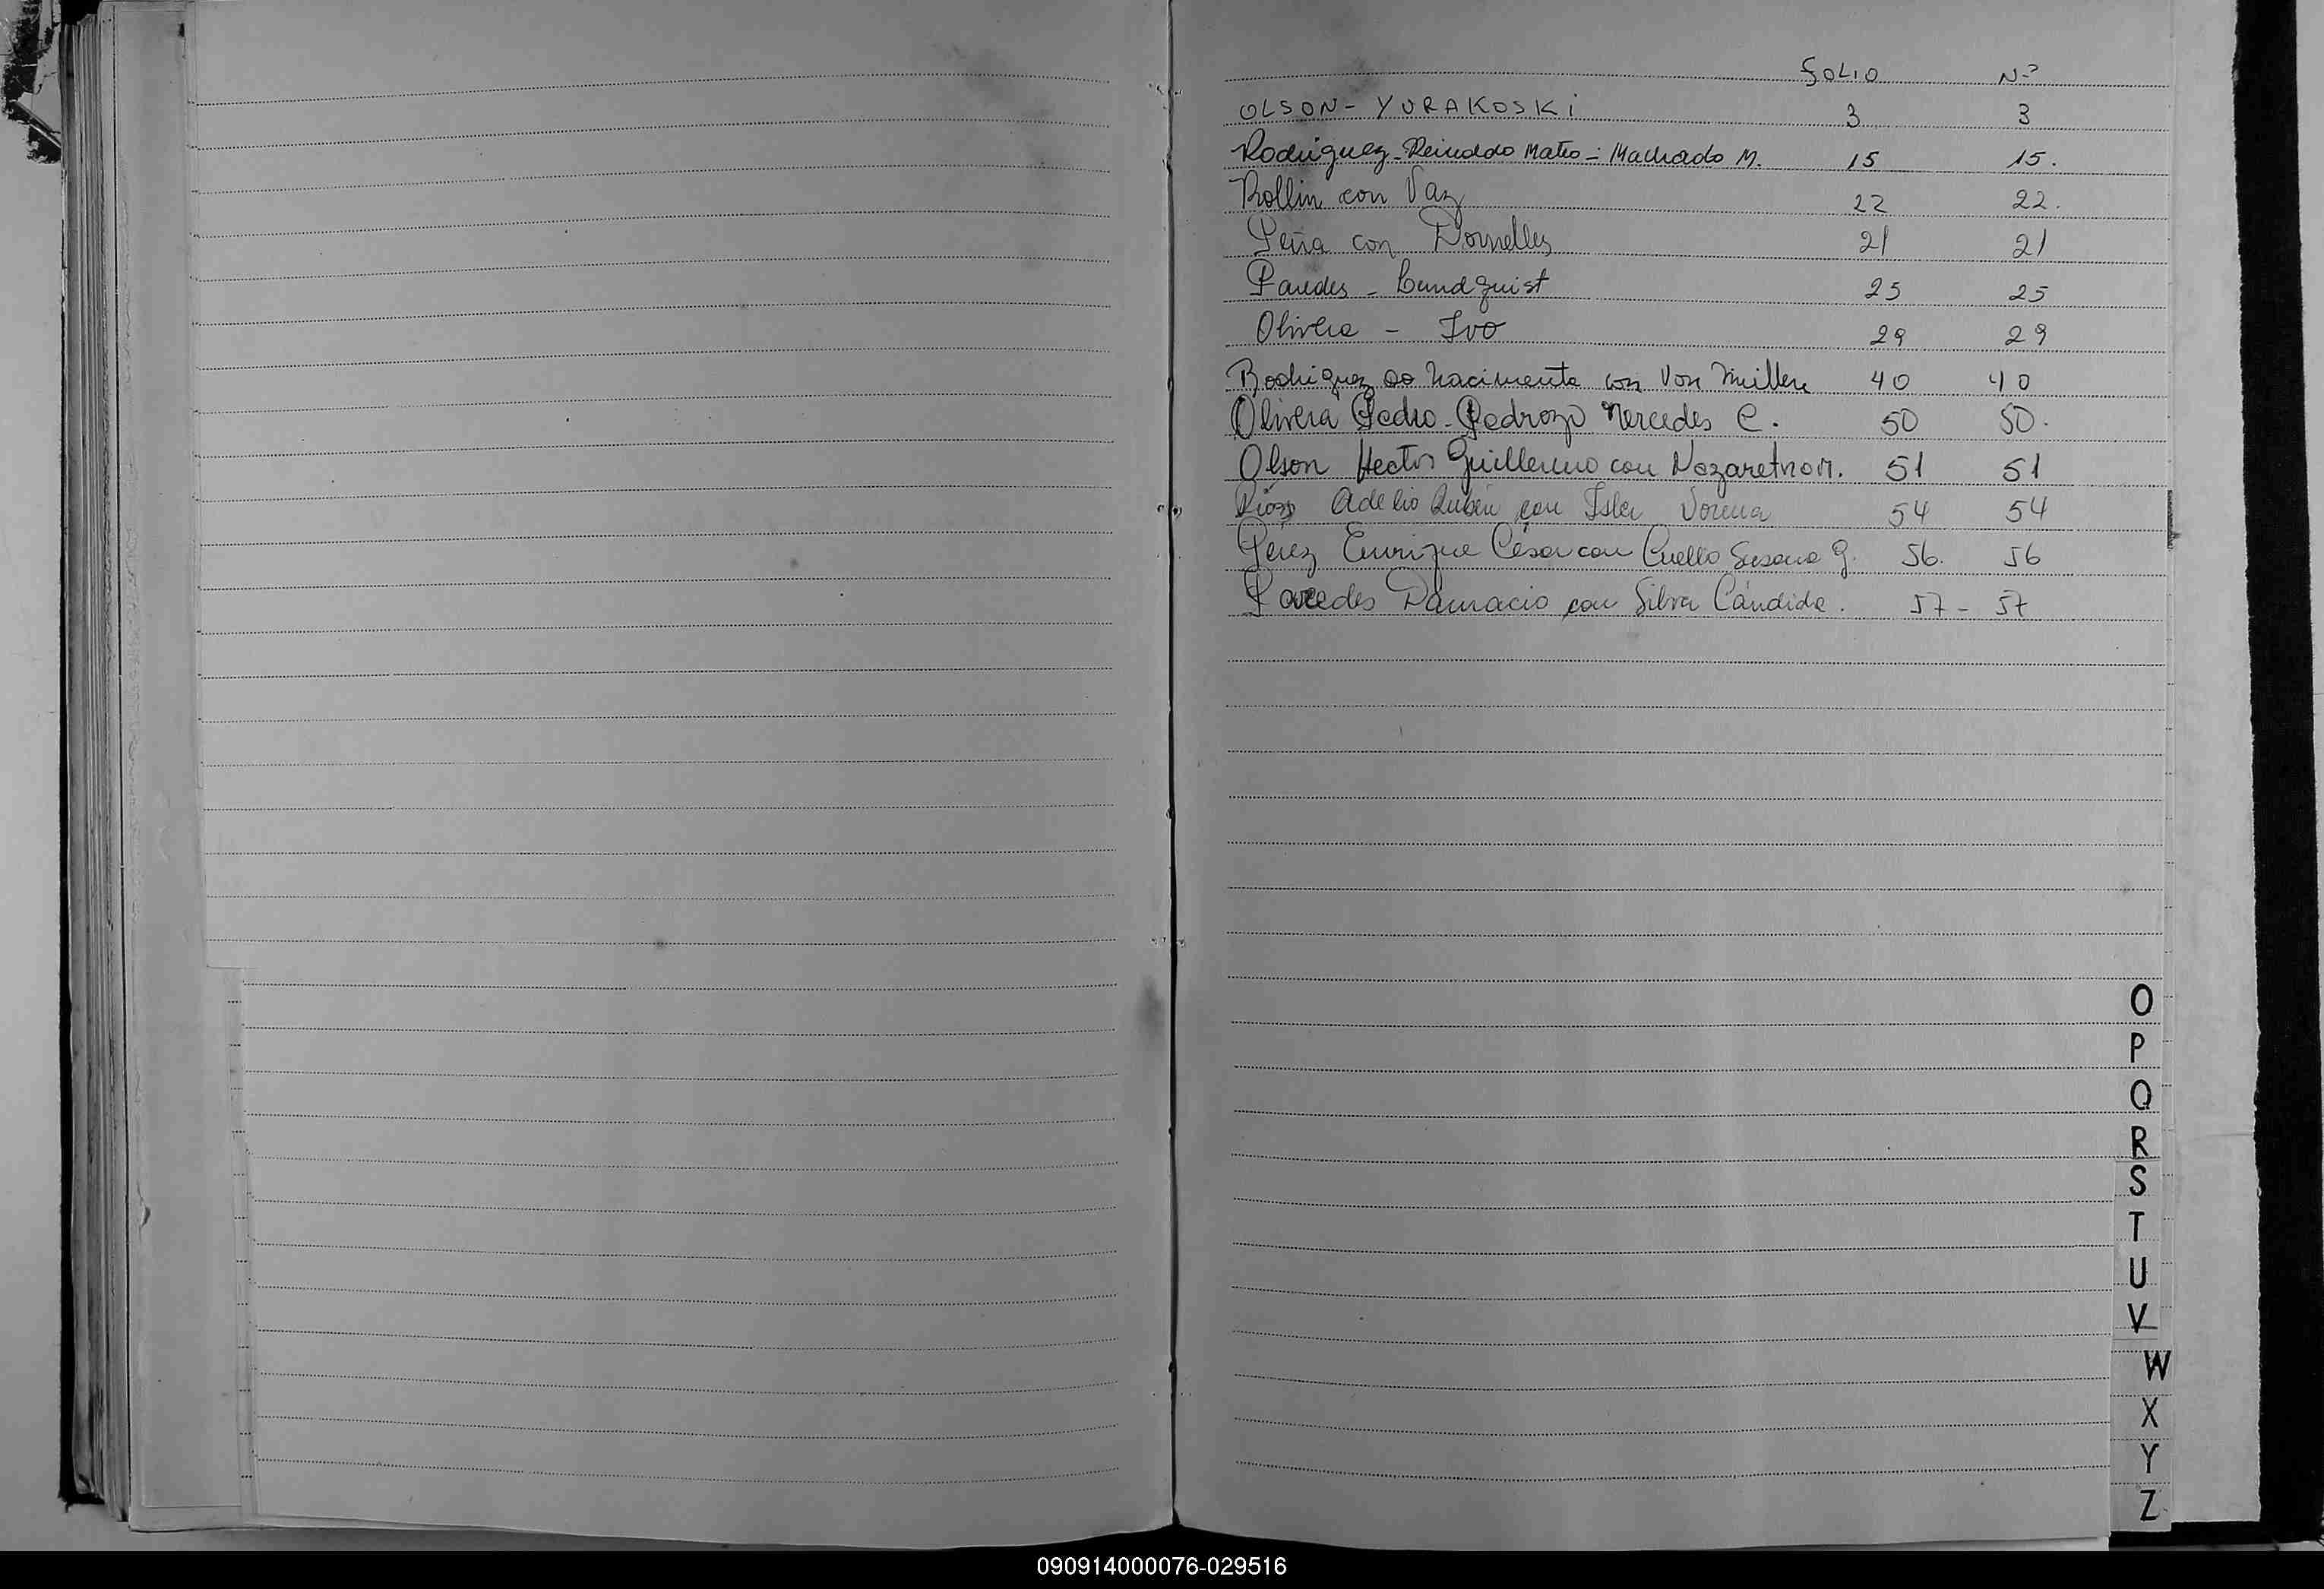 FOLIO Nº
OLSON - YURAKOSKi 3 3
Rodriguez - Reinaldo Mateo - Machado M. 15 15.
Rollin con Vaz 22 22.
Peña con Dornelles 21 21
Paredes - Lundquist 25 25
Olivera - Ivo 29 29
Rodriguez do Nacimento con Von Mullen 40 40
Olivera Pedro - Pedrozo Mercedes C. 50 50.
Olson Hector Guillermo con Nazaret 51 51
Rios Adelio Rubén con Isler 54 54
Pérez Enrique César con Cuello Susana G. 56. 56
Paredes Damacio con Silva Cándida. 57 - 57
O
P
Q
R
S
T
U
V
W
X
Y
Z
090914000076-029516